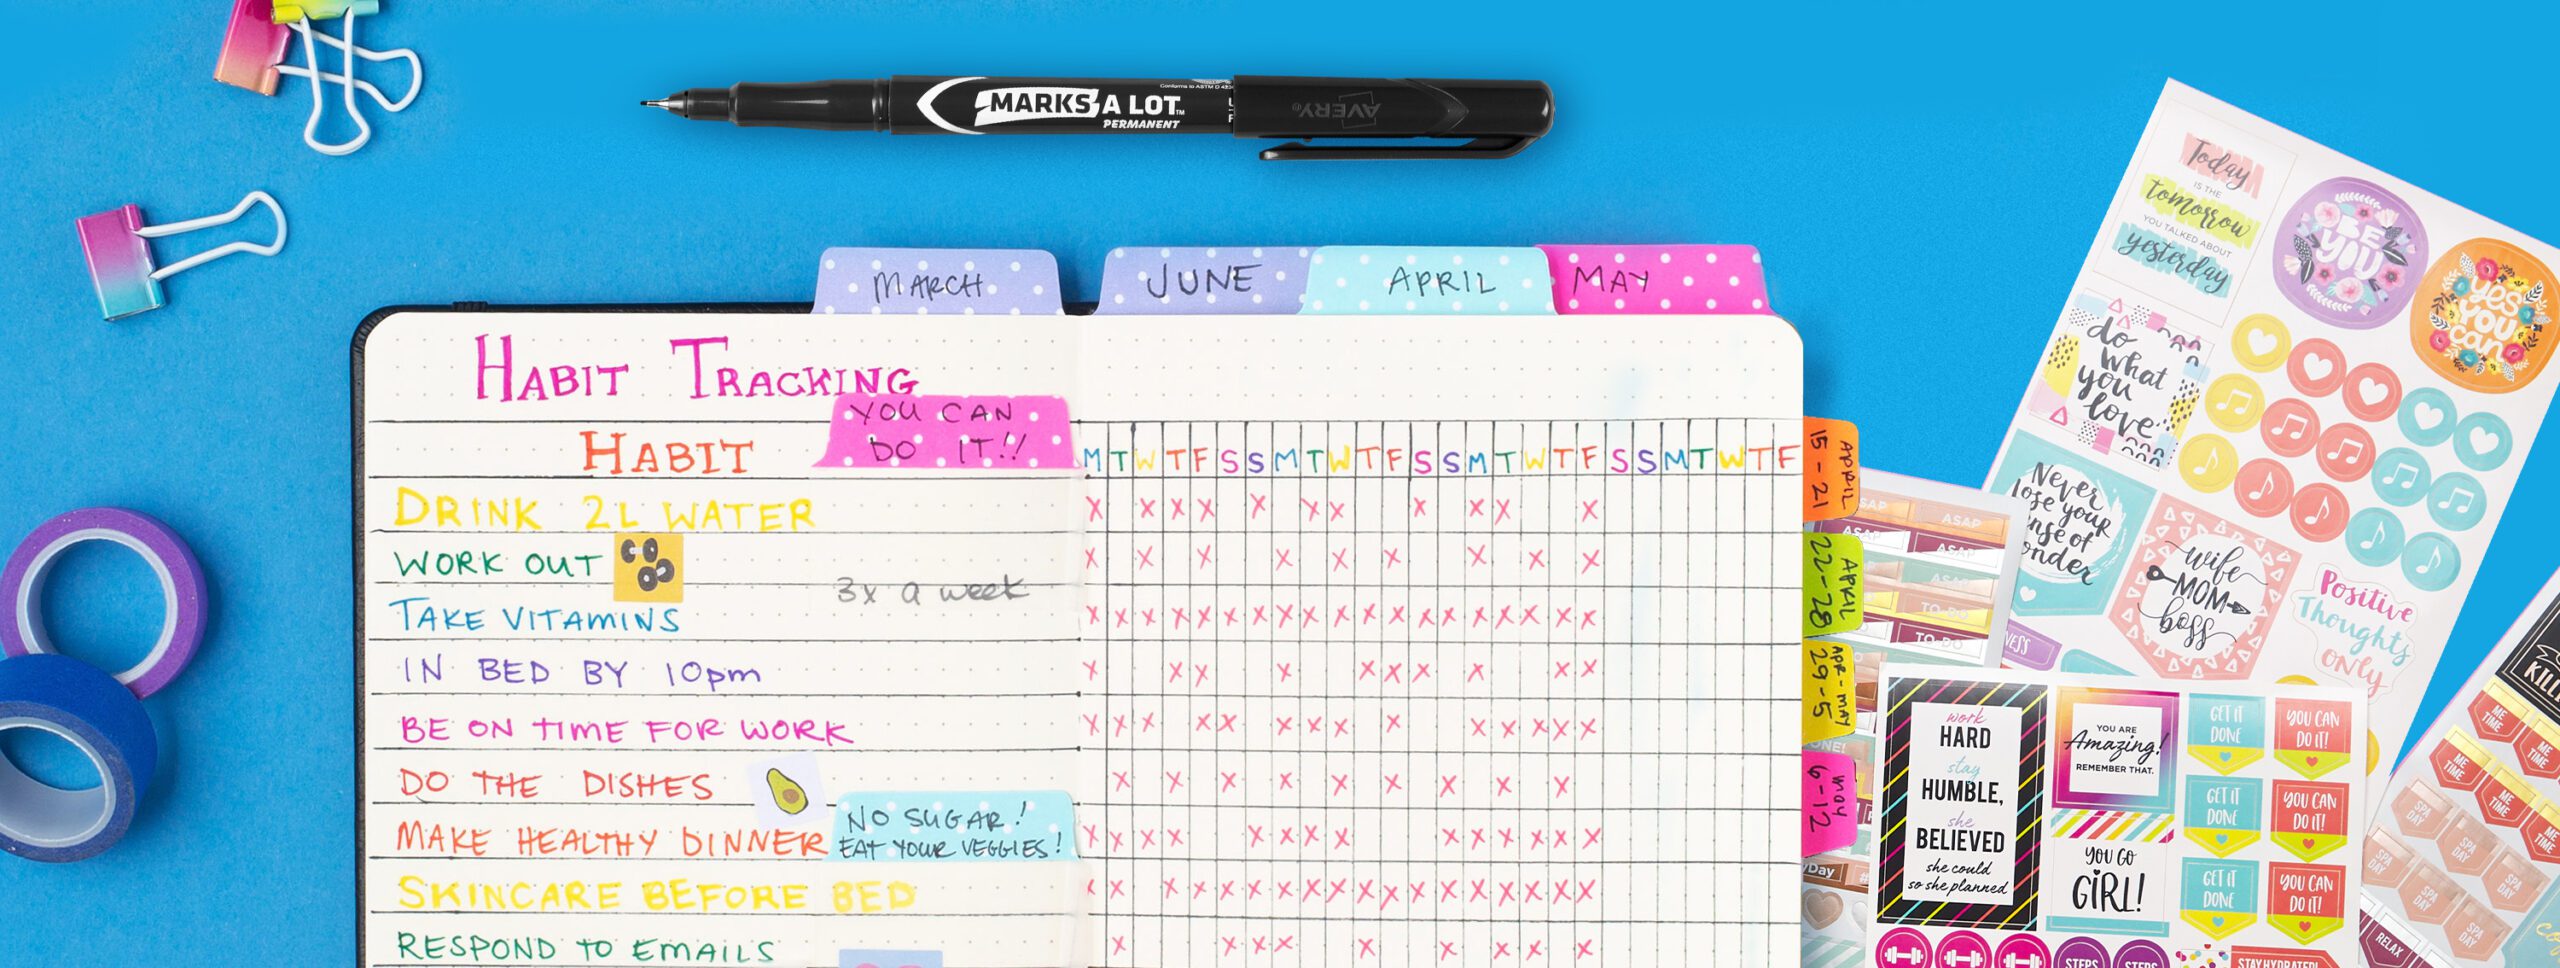 Conforms to ASTM D 42
MARKS A LOT™
PERMANENT
AVERY®
MARCH
JUNE
APRIL
MAY
HABIT TRACKING
YOU CAN
DO IT!!
HABIT
M T W T F S S M T W T F S S M T W T F S S M T W T F
DRINK 2L WATER
WORK OUT
3x a week
TAKE VITAMINS
IN BED BY 10pm
BE ON TIME FOR WORK
DO THE DISHES
MAKE HEALTHY DINNER
NO SUGAR!
EAT YOUR VEGGIES!
SKINCARE BEFORE BED
RESPOND TO EMAILS
APRIL
15-21
APRIL
22-28
APR-MAY
29-5
MAY
6-12
Today
IS THE
tomorrow
YOU TALKED ABOUT
yesterday
BE
YOU
YES
YOU
Can
do
what
you
love
Never
lose your
nse of
onder
wife
MOM
boss
Positive
Thoughts
ONLY
NESS
ASAP
ASAP
ASAP
TO-DO
TO-DO
work
HARD
stay
HUMBLE,
she
BELIEVED
she could
so she planned
YOU ARE
Amazing!
REMEMBER THAT.
YOU GO
GiRL!
GET IT
DONE
YOU CAN
DO IT!
GET IT
DONE
YOU CAN
DO IT!
GET IT
DONE
YOU CAN
DO IT!
STEPS
STEPS
STAY HYDRATED!
KILL
ME
TIME
ME
TIME
ME
TIME
ME
TIME
ME
TIME
SPA
DAY
SPA
DAY
SPA
DAY
SPA
DAY
SPA
DAY
SPA
DAY
RELAX